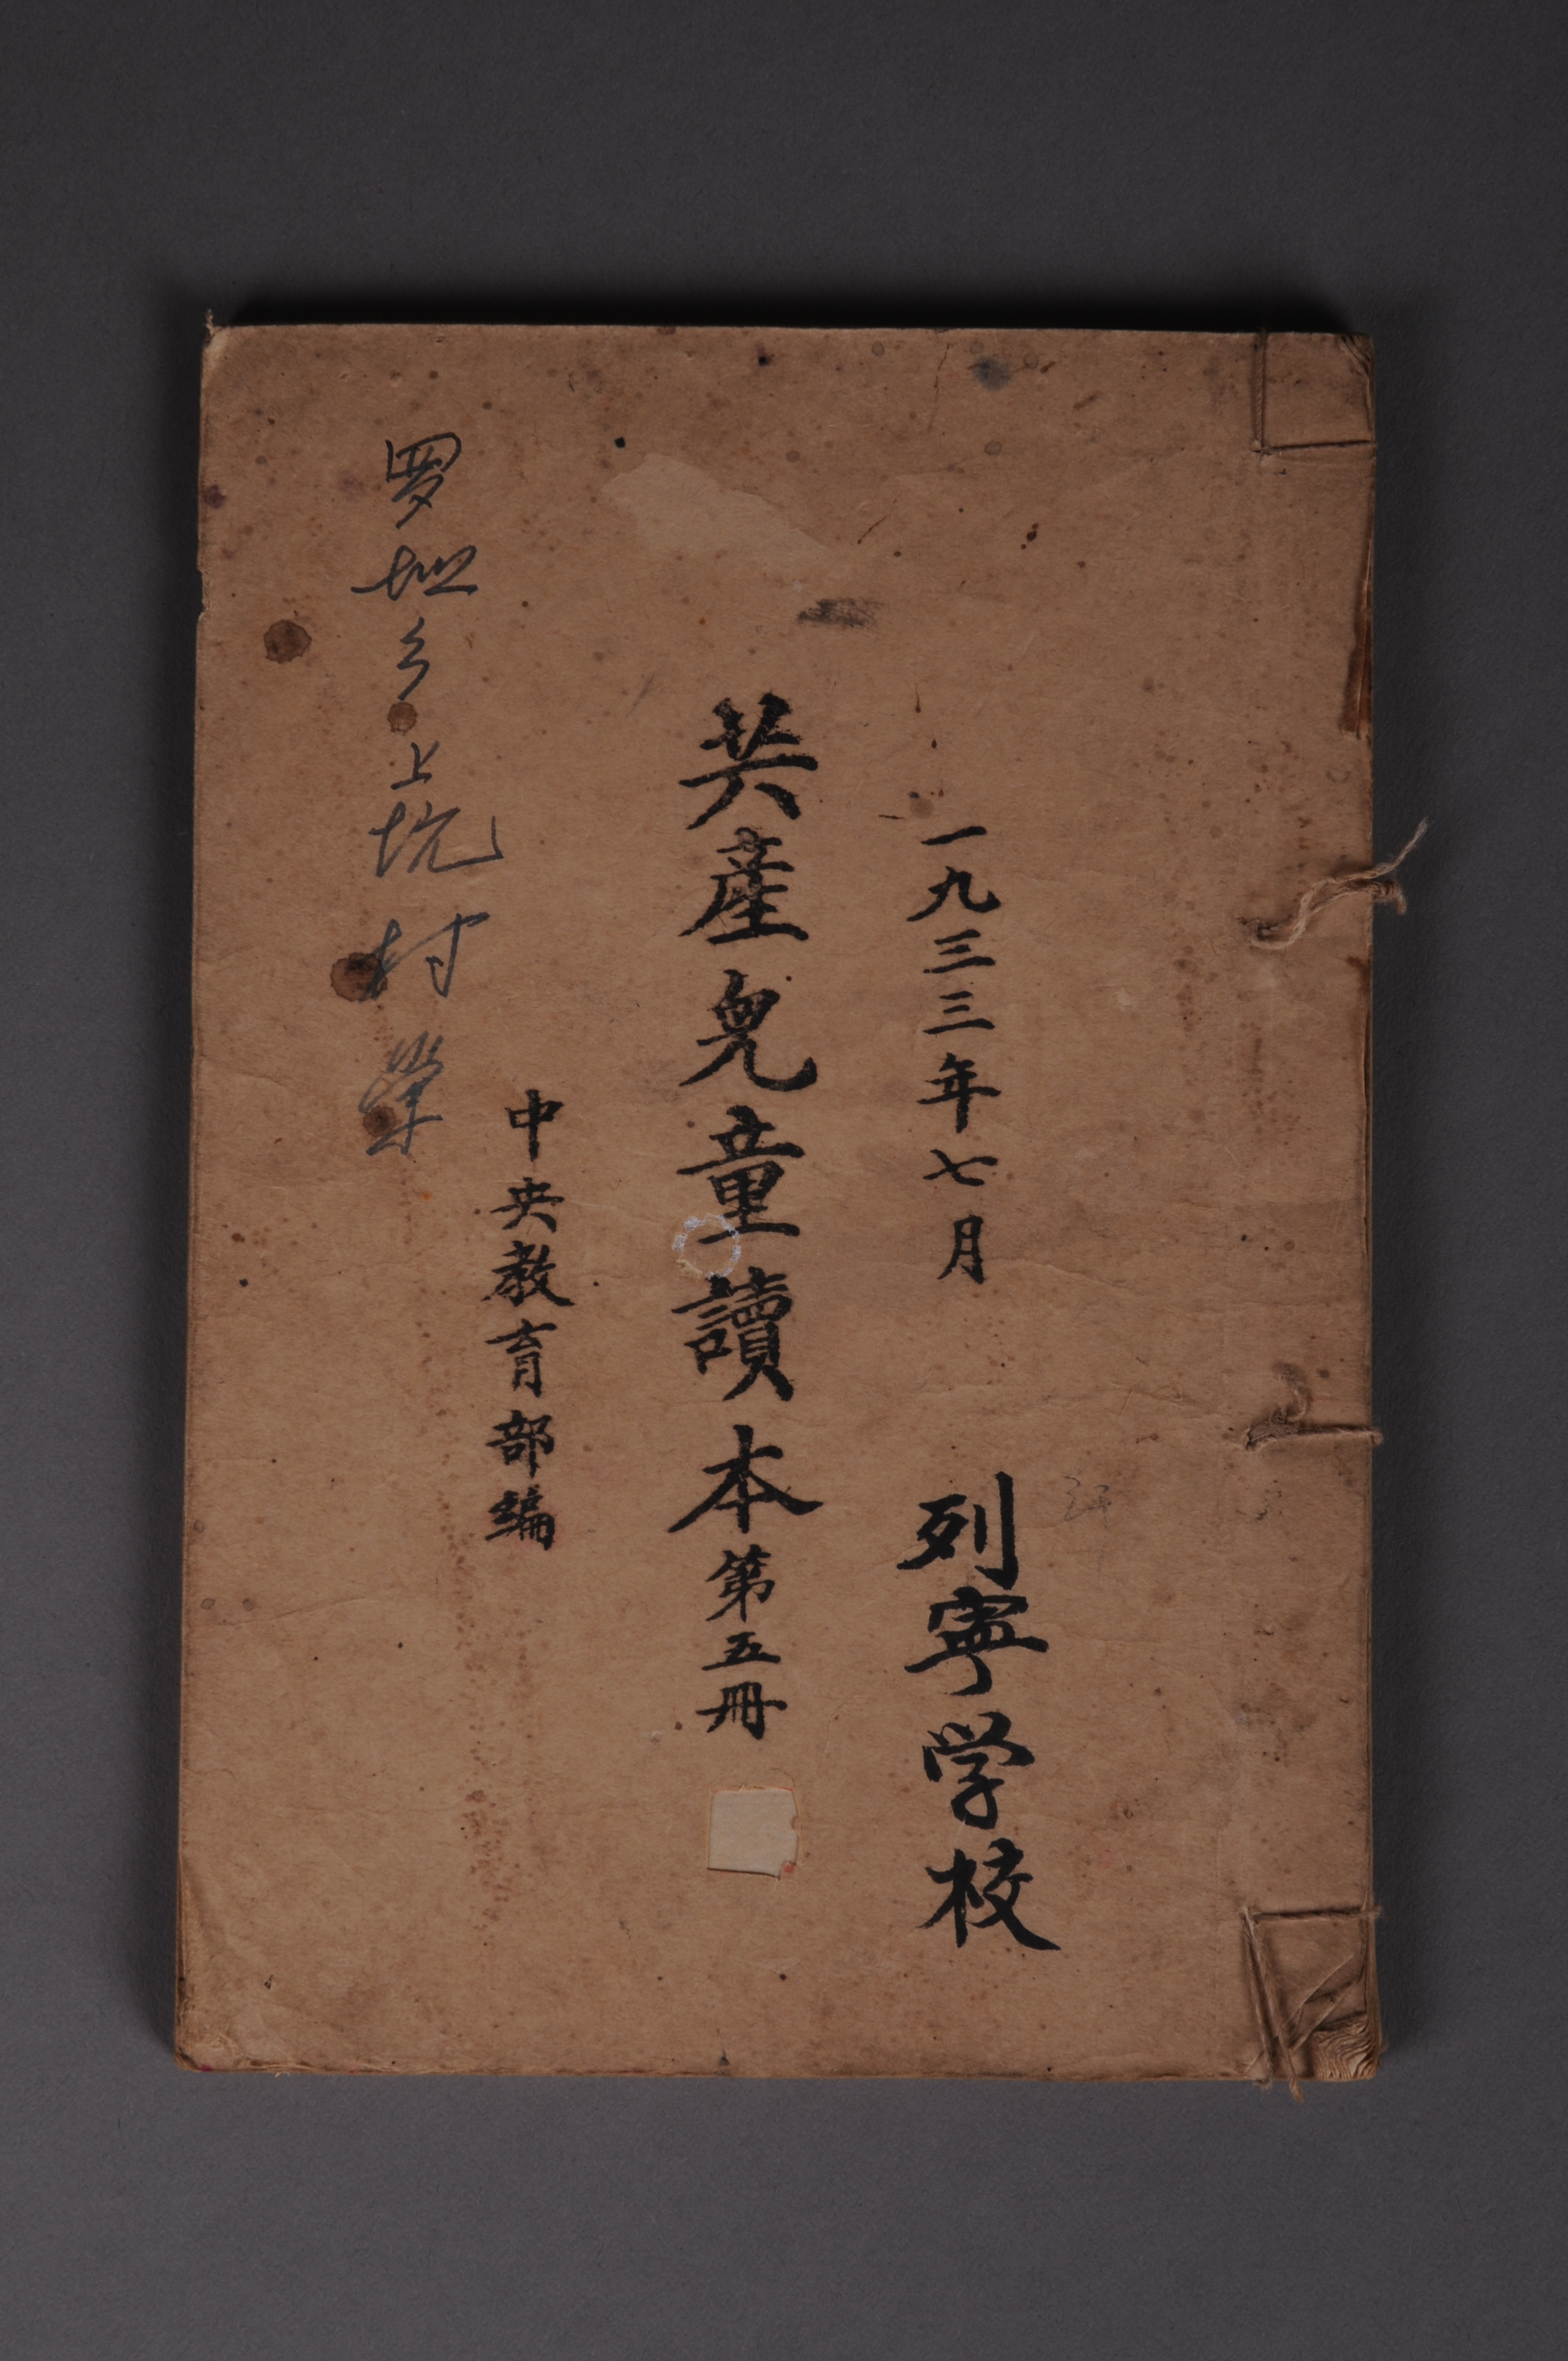 一九三三年七月
列寧学校
共產兒童讀本第五冊
中央教育部編
罗坳乡上坑村